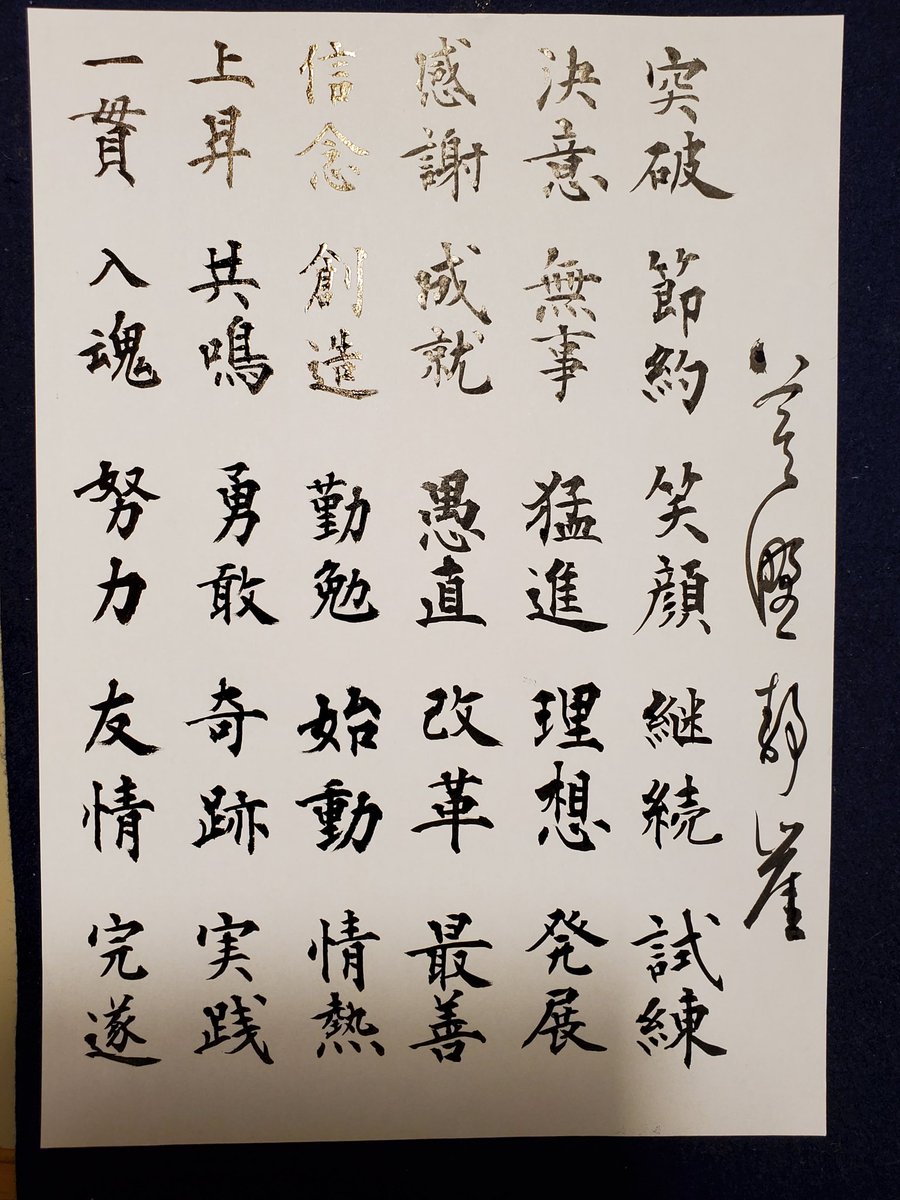 突破 節約 笑顔 継続 試練
決意 無事 猛進 理想 発展
感謝 成就 愚直 改革 最善
信念 創造 勤勉 始動 情熱
上昇 共鳴 勇敢 奇跡 実践
一貫 入魂 努力 友情 完遂